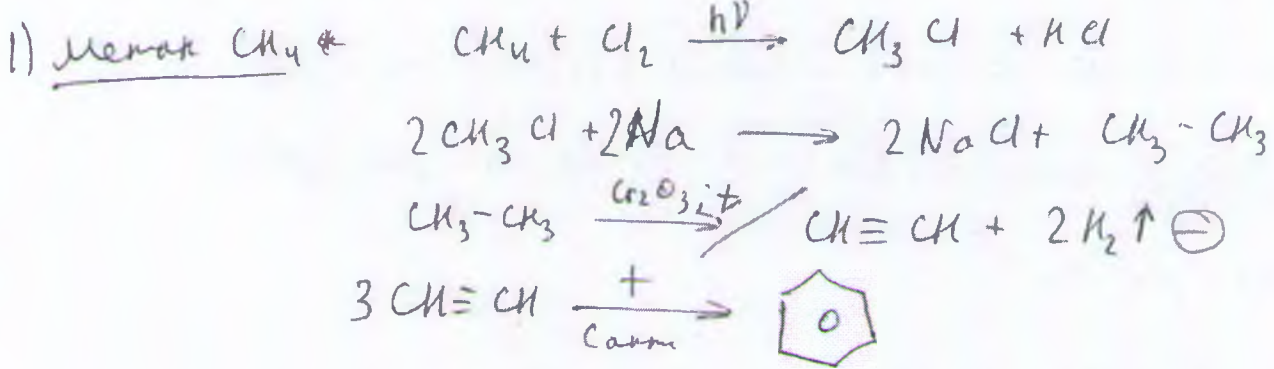 1) Метан CH₄ * CH₄ + Cl₂ —hν→ CH₃Cl + HCl
2CH₃Cl + 2Na ⟶ 2NaCl + CH₃-CH₃
CH₃-CH₃ —Cr₂O₃; t→ CH≡CH + 2H₂↑ ⊖
3CH≡CH —+ / Cакт→